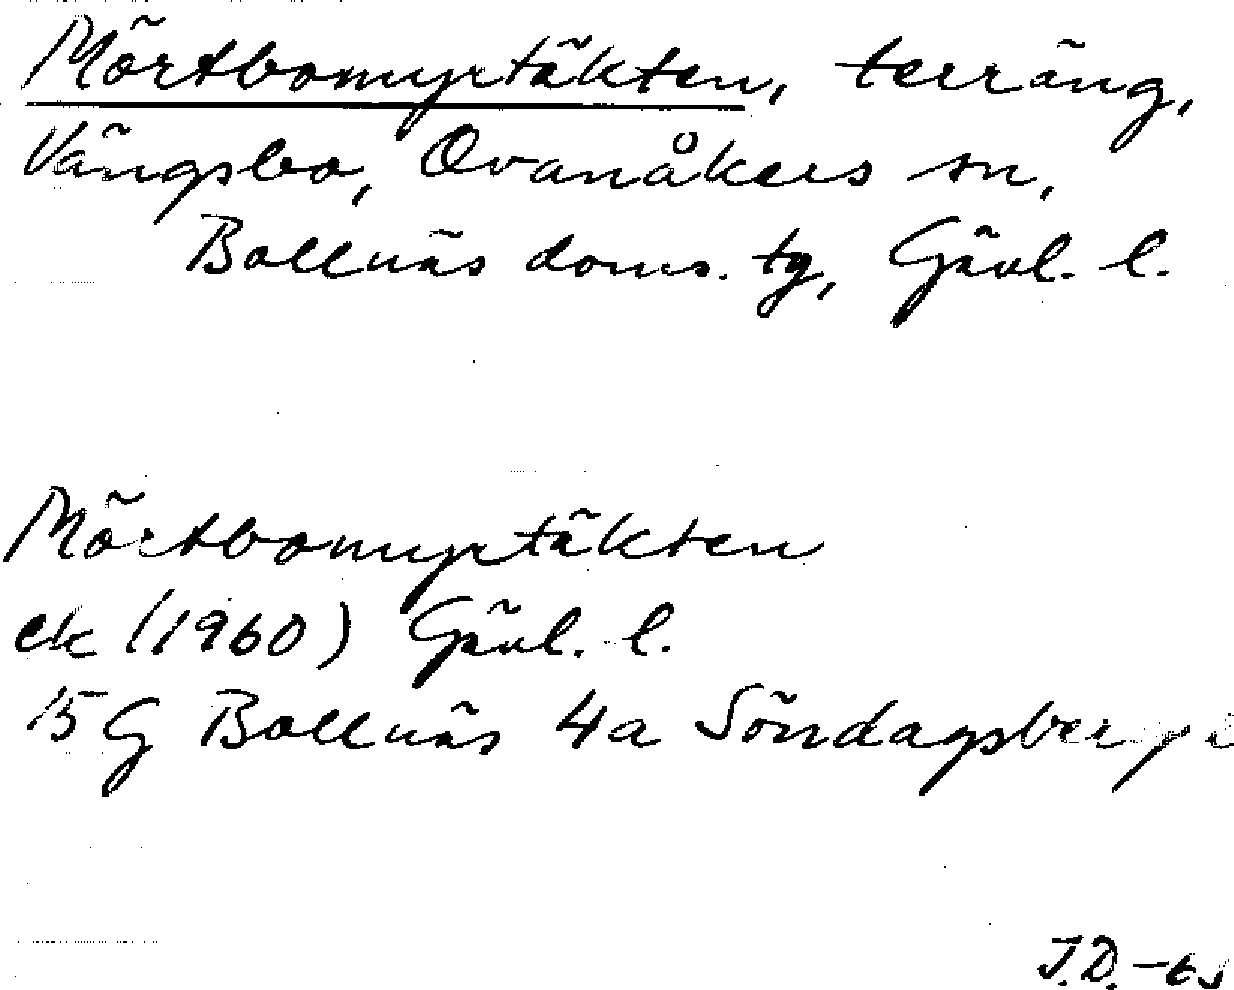 Mörtbomyrtäkten, terräng,
Vängsbo, Ovanåkers sn,
Bollnäs doms. tg, Gävl. l.
Mörtbomyrtäkten
ek (1960) Gävl. l.
15 G Bollnäs 4a Söndagsberget
J.D. -65